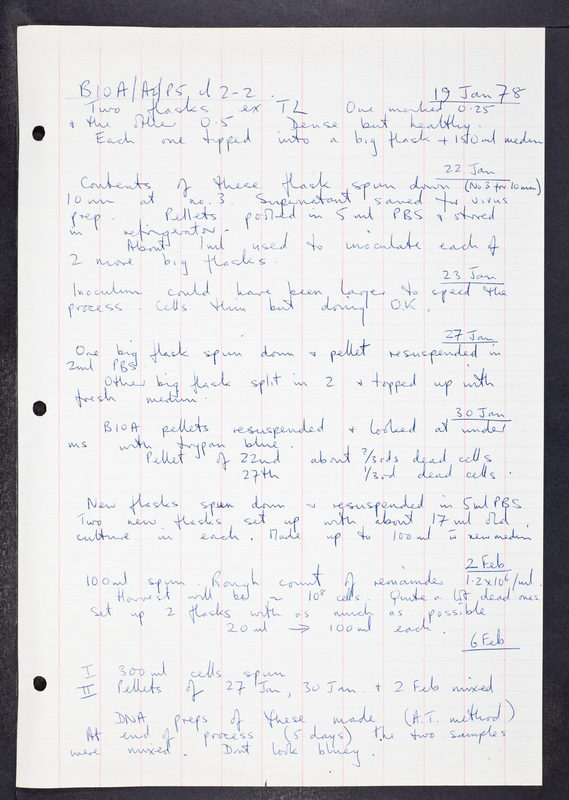 B10A/A2/P5 cl 2-2.
19 Jan 78
Two flasks ex TL One marked 0.25
& the other 0.5 Dense but healthy.
Each one tipped into a big flask + 150 ml medium
22 Jan
Contents of these flask spun down (No 3 for 10 min)
10 min at no. 3. Supernatant saved for virus
prep. Pellets pooled in 5 ml PBS & stored
in refrigerator.
About 1 ml used to inoculate each of
2 more big flasks.
23 Jan
Inoculum could have been larger to speed the
process. Cells thin but doing OK.
27 Jan
One big flask spun down & pellet resuspended in
2 ml PBS
Other big flask split in 2 & topped up with
fresh medium.
30 Jan
B10A pellets resuspended & looked at under
ms with trypan blue.
Pellet of 22nd about 2/3rds dead cells
27th 1/3rd dead cells.
New flasks spun down & resuspended in 5 ml PBS
Two new flasks set up with about 17 ml old
culture in each. Made up to 100 ml new medium
2 Feb
100 ml spun. Rough count of remainder 1.2x10⁶/ml.
Harvest will be ~ 10⁸ cells. Quite a lot dead ones.
Set up 2 flasks with as much as possible
20 ml → 100 ml each.
6 Feb
I 300 ml cells spun
II Pellets of 27 Jan, 30 Jan & 2 Feb mixed
DNA preps of these made (A.T. method)
At end of process (5 days) the two samples
were mixed. Dont look bluey.